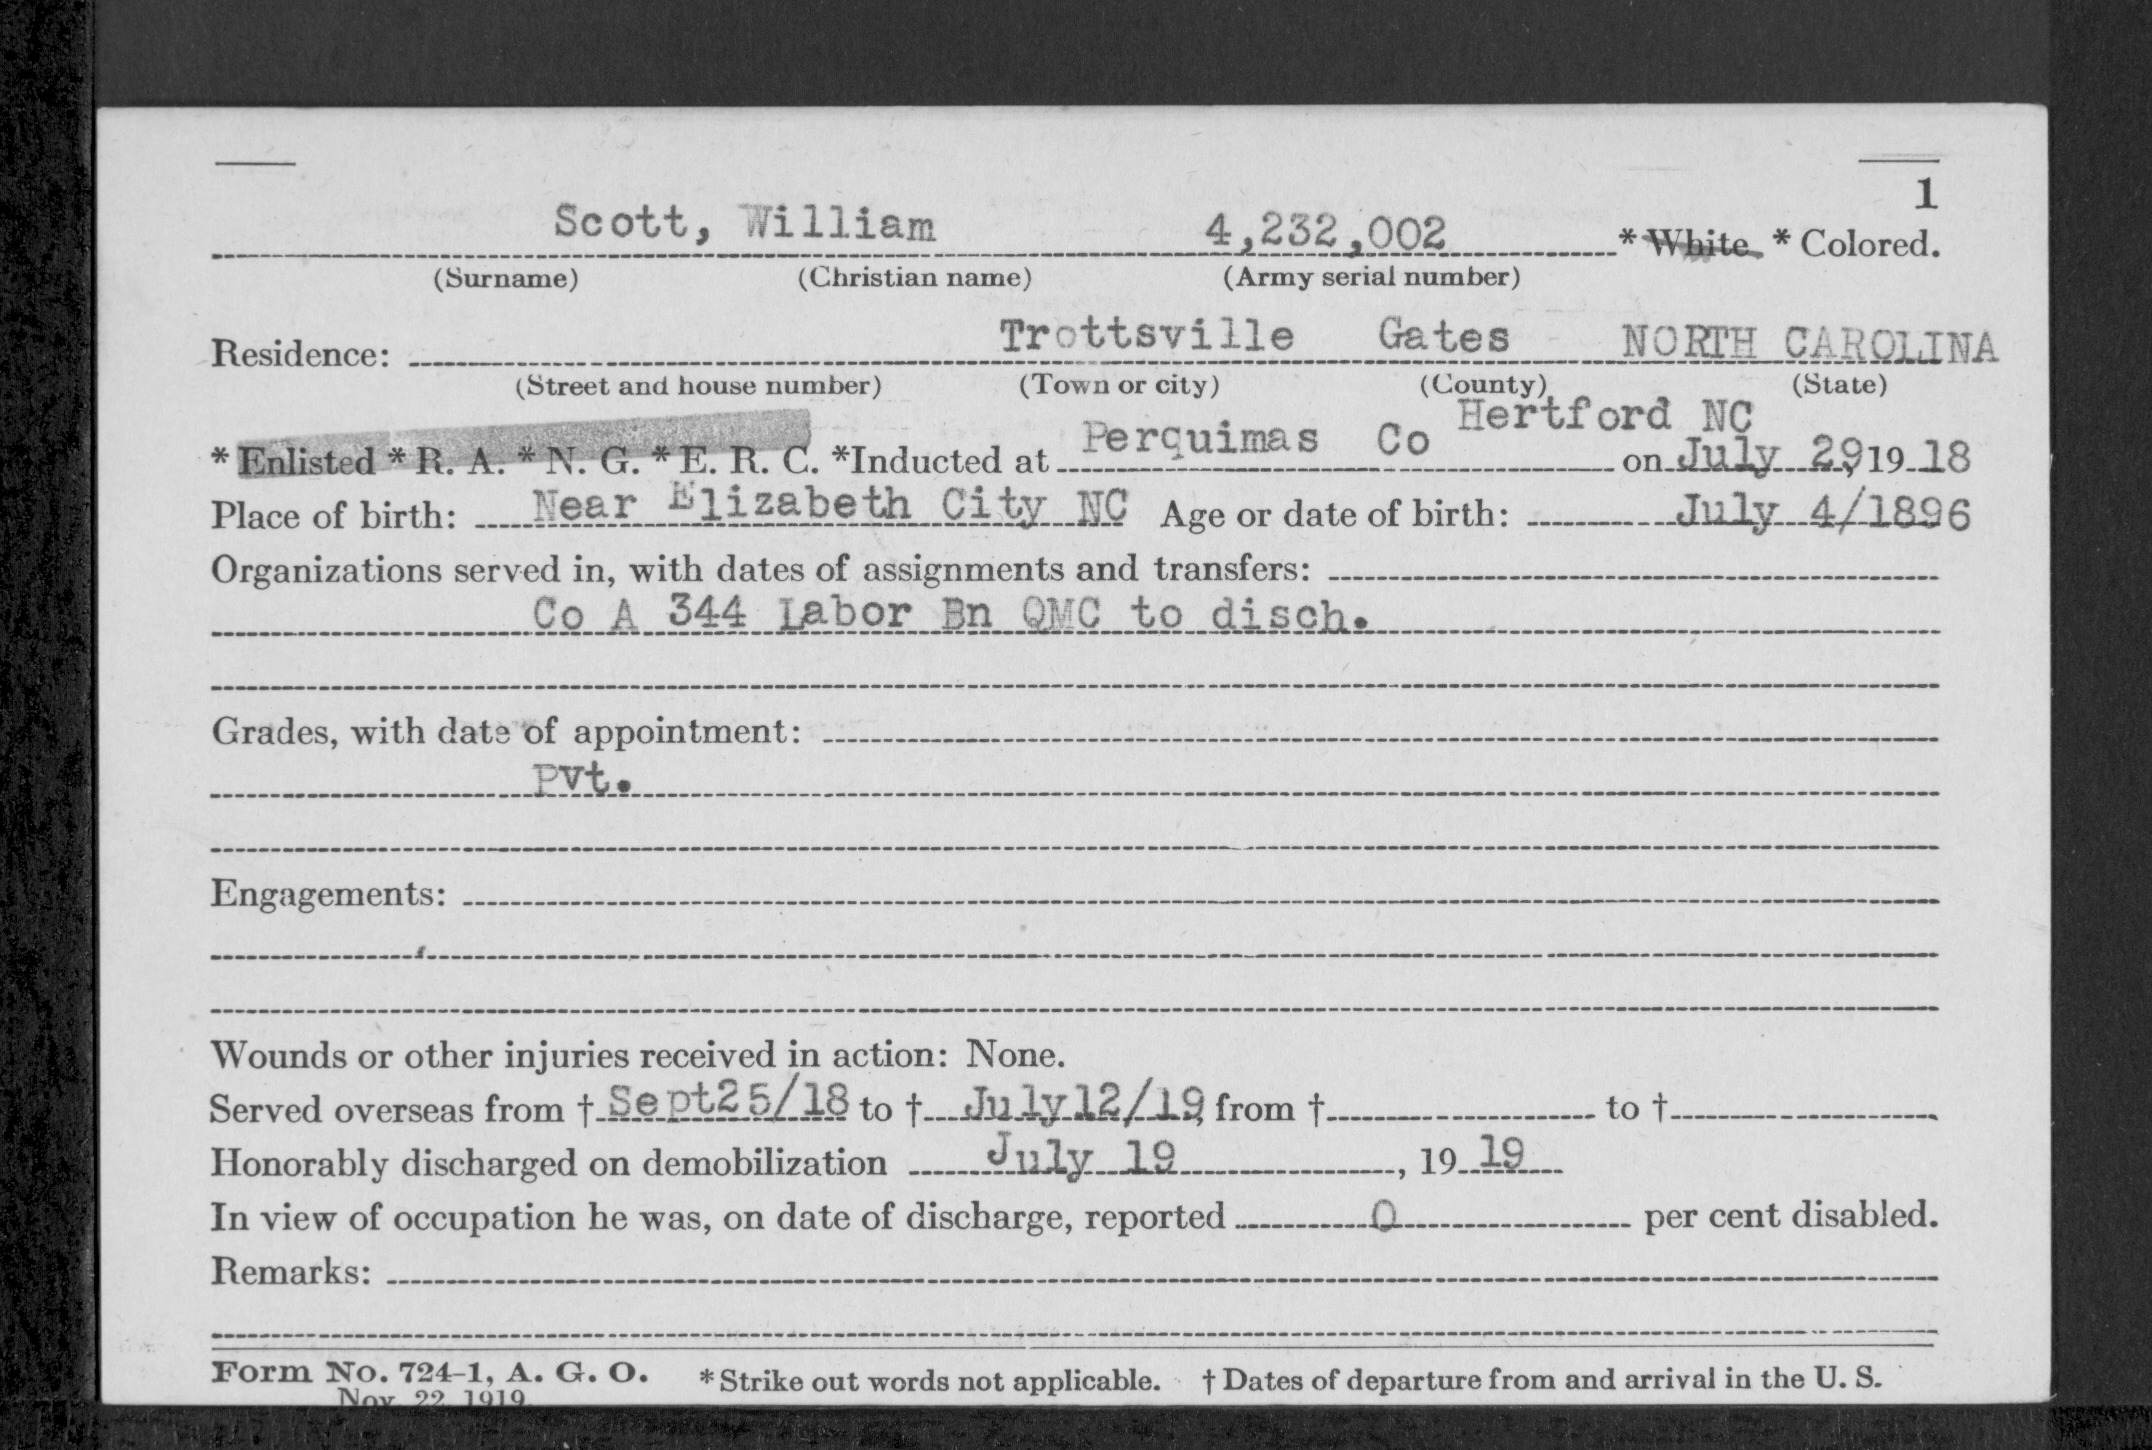 1
Scott, William 4,232,002 * White * Colored.
(Surname) (Christian name) (Army serial number)
Residence: Trottsville Gates NORTH CAROLINA
(Street and house number) (Town or city) (County) (State)
Hertford NC
* Enlisted * R. A. * N. G. * E. R. C. *Inducted at Perquimas Co on July 29, 19 18
Place of birth: Near Elizabeth City NC Age or date of birth: July 4/1896
Organizations served in, with dates of assignments and transfers:
Co A 344 Labor Bn QMC to disch.
Grades, with date of appointment:
Pvt.
Engagements:
Wounds or other injuries received in action: None.
Served overseas from † Sept25/18 to † July12/19, from † to †
Honorably discharged on demobilization July 19, 19 19
In view of occupation he was, on date of discharge, reported 0 per cent disabled.
Remarks:
Form No. 724-1, A. G. O. * Strike out words not applicable. † Dates of departure from and arrival in the U. S.
Nov. 22, 1919